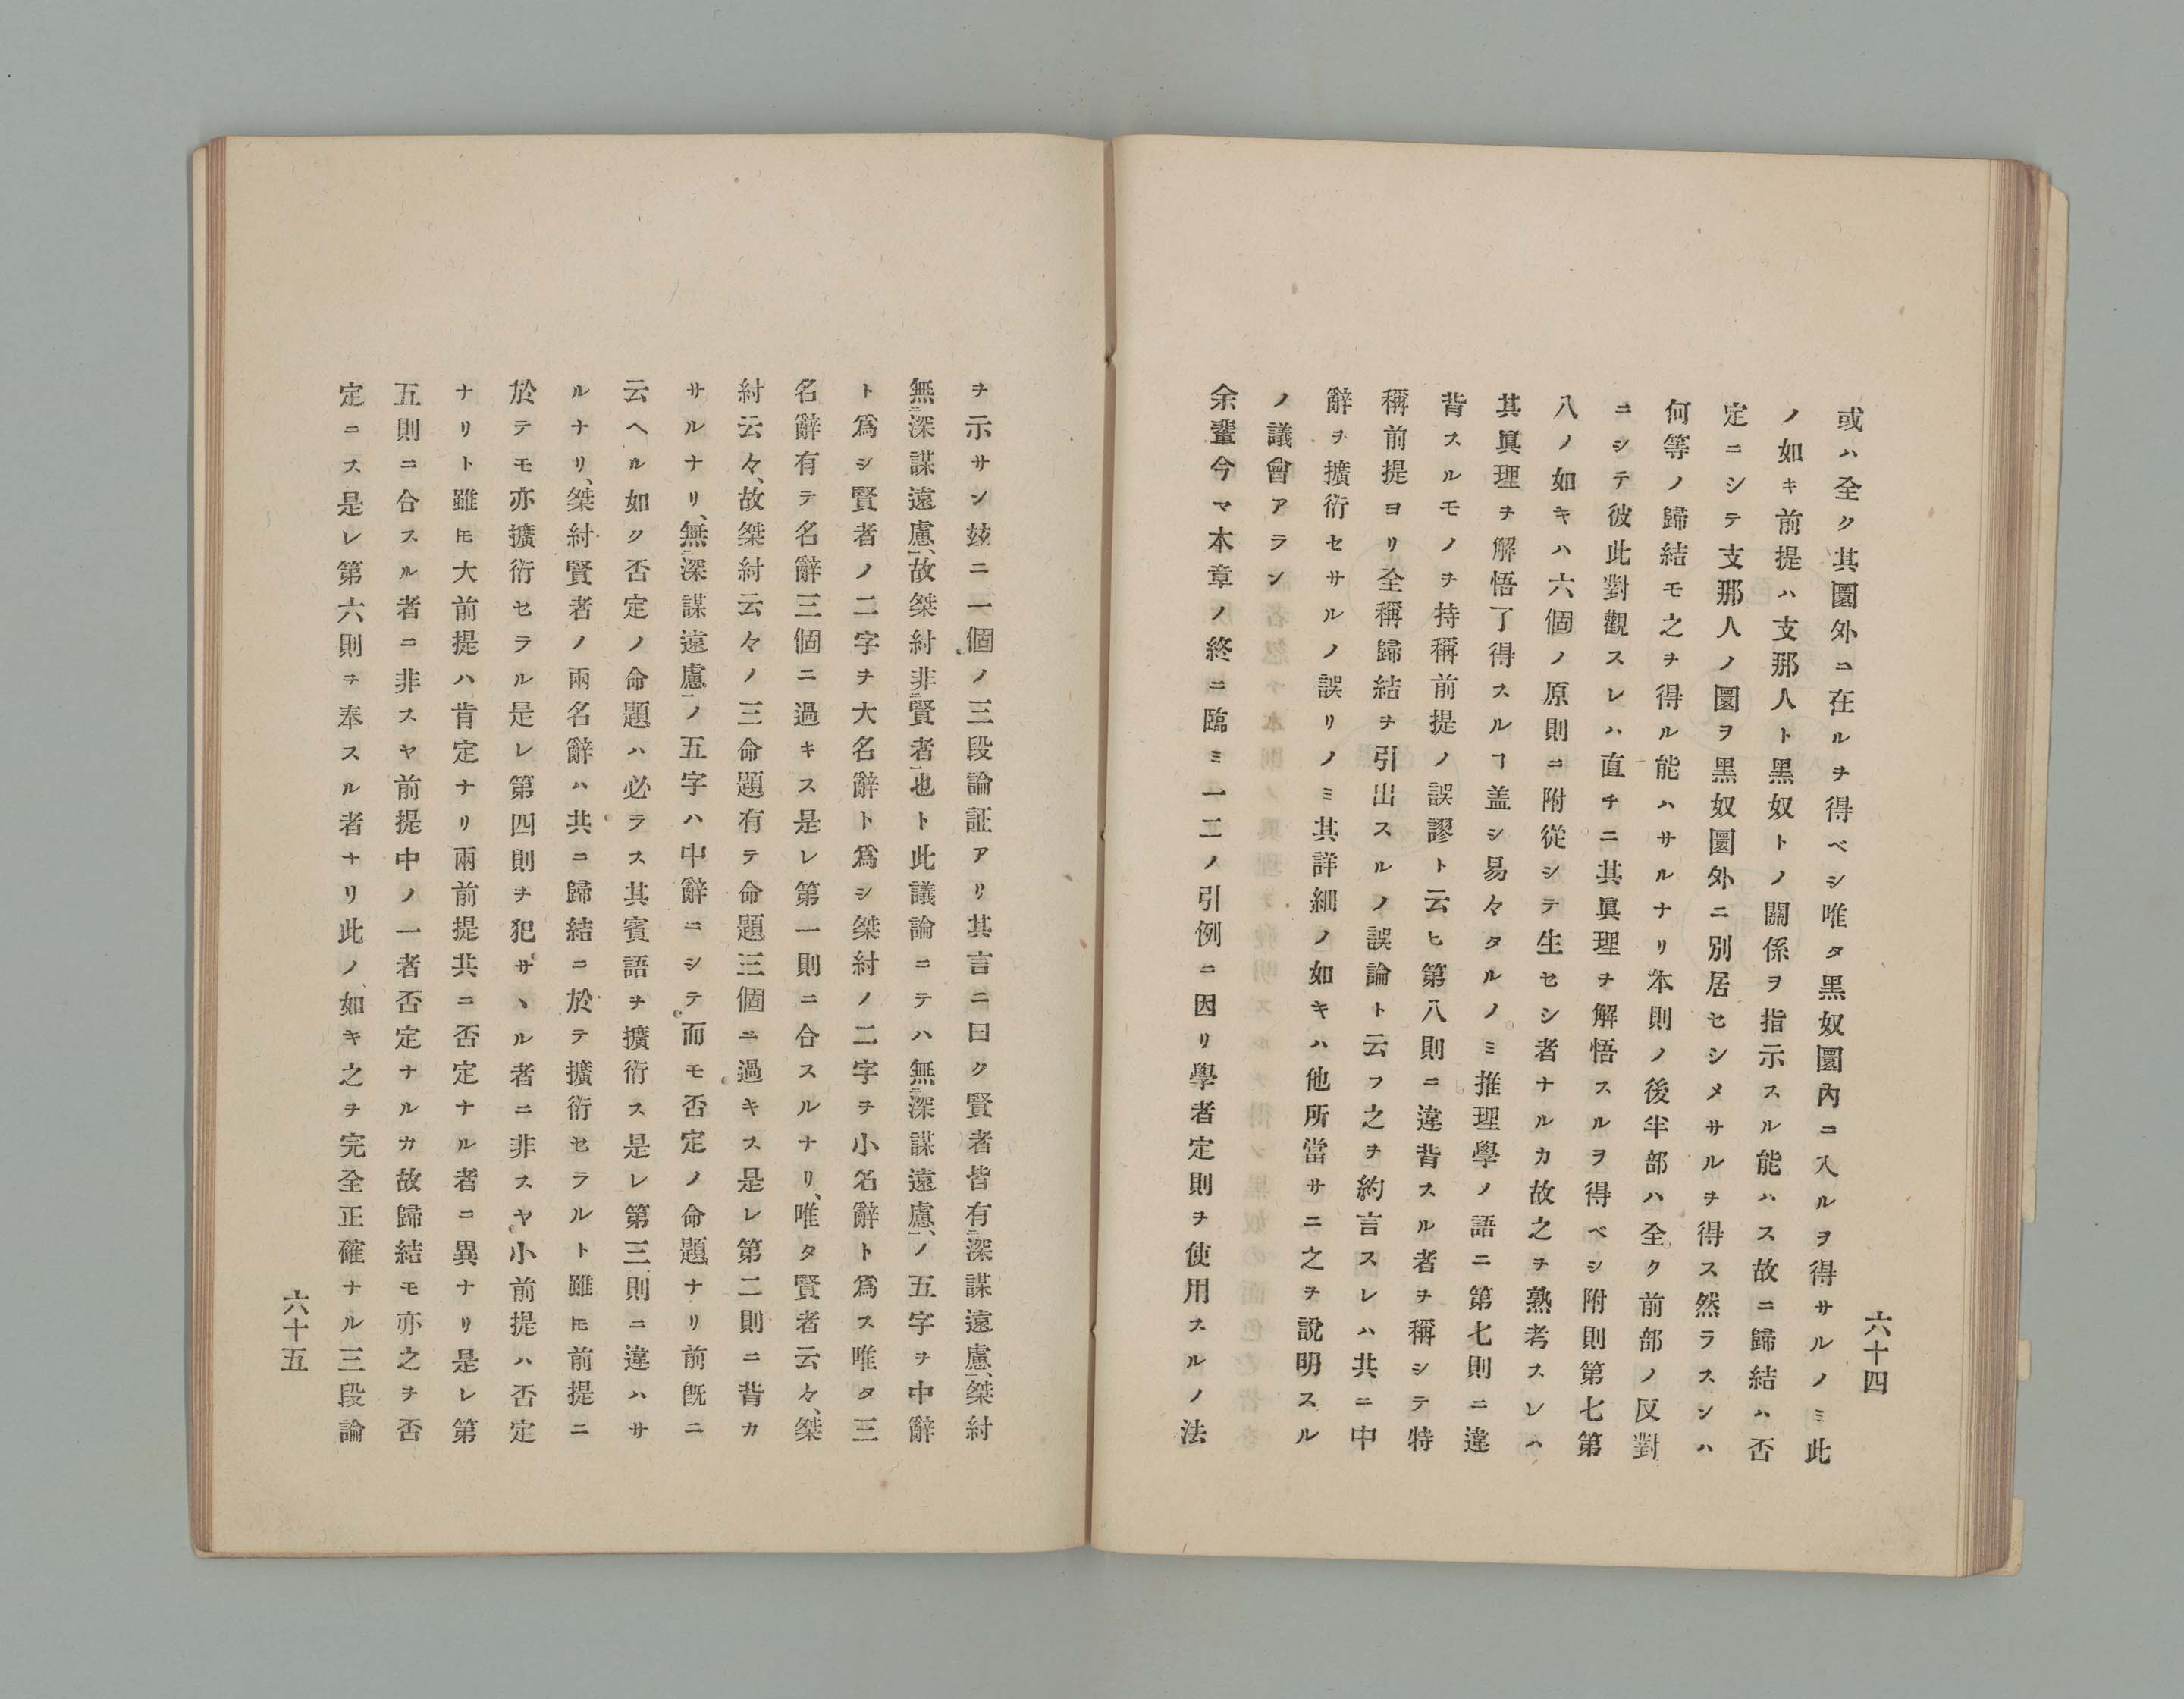 六十四
或ハ全ク其圜外ニ在ルヲ得ベシ唯タ黒奴圜內ニ入ルヲ得サルノミ此
ノ如キ前提ハ支那人ト黒奴トノ關係ヲ指示スル能ハス故ニ歸結ハ否
定ニシテ支那人ノ圜ヲ黒奴圜外ニ別居セシメサルヲ得ス然ラスンハ
何等ノ歸結モ之ヲ得ル能ハサルナリ本則ノ後半部ハ全ク前部ノ反對
ニシテ彼此對觀スレハ直チニ其眞理ヲ解悟スルヲ得ベシ附則第七第
八ノ如キハ六個ノ原則ニ附從シテ生セシ者ナルカ故之ヲ熟考スレハ
其眞理ヲ解悟了得スルヿ盖シ易々タルノミ推理學ノ語ニ第七則ニ違
背スルモノヲ持稱前提ノ誤謬ト云ヒ第八則ニ違背スル者ヲ稱シテ特
稱前提ヨリ全稱歸結ヲ引出スルノ誤論ト云フ之ヲ約言スレハ共ニ中
辭ヲ擴衍セサルノ誤リノミ其詳細ノ如キハ他所當サニ之ヲ說明スル
ノ議會アラン
余輩今マ本章ノ終ニ臨ミ一二ノ引例ニ因リ學者定則ヲ使用スルノ法
ヲ示サン玆ニ一個ノ三段論証アリ其言ニ曰ク賢者皆有深謀遠慮、桀紂
無深謀遠慮、故桀紂非賢者也ト此議論ニテハ無深謀遠慮、ノ五字ヲ中辭
ト爲シ賢者ノ二字ヲ大名辭ト爲シ桀紂ノ二字ヲ小名辭ト爲ス唯タ三
名辭有テ名辭三個ニ過キス是レ第一則ニ合スルナリ、唯タ賢者云々、桀
紂云々、故桀紂云々ノ三命題有テ命題三個ニ過キス是レ第二則ニ背カ
サルナリ、無深謀遠慮ノ五字ハ中辭ニシテ而モ否定ノ命題ナリ前旣ニ
云ヘル如ク否定ノ命題ハ必ラス其賓語ヲ擴衍ス是レ第三則ニ違ハサ
ルナリ、桀紂賢者ノ兩名辭ハ共ニ歸結ニ於テ擴衍セラルト雖モ前提ニ
於テモ亦擴衍セラル是レ第四則ヲ犯サヽル者ニ非スヤ小前提ハ否定
ナリト雖モ大前提ハ肯定ナリ兩前提共ニ否定ナル者ニ異ナリ是レ第
五則ニ合スル者ニ非スヤ前提中ノ一者否定ナルカ故歸結モ亦之ヲ否
定ニス是レ第六則ヲ奉スル者ナリ此ノ如キ之ヲ完全正確ナル三段論
六十五